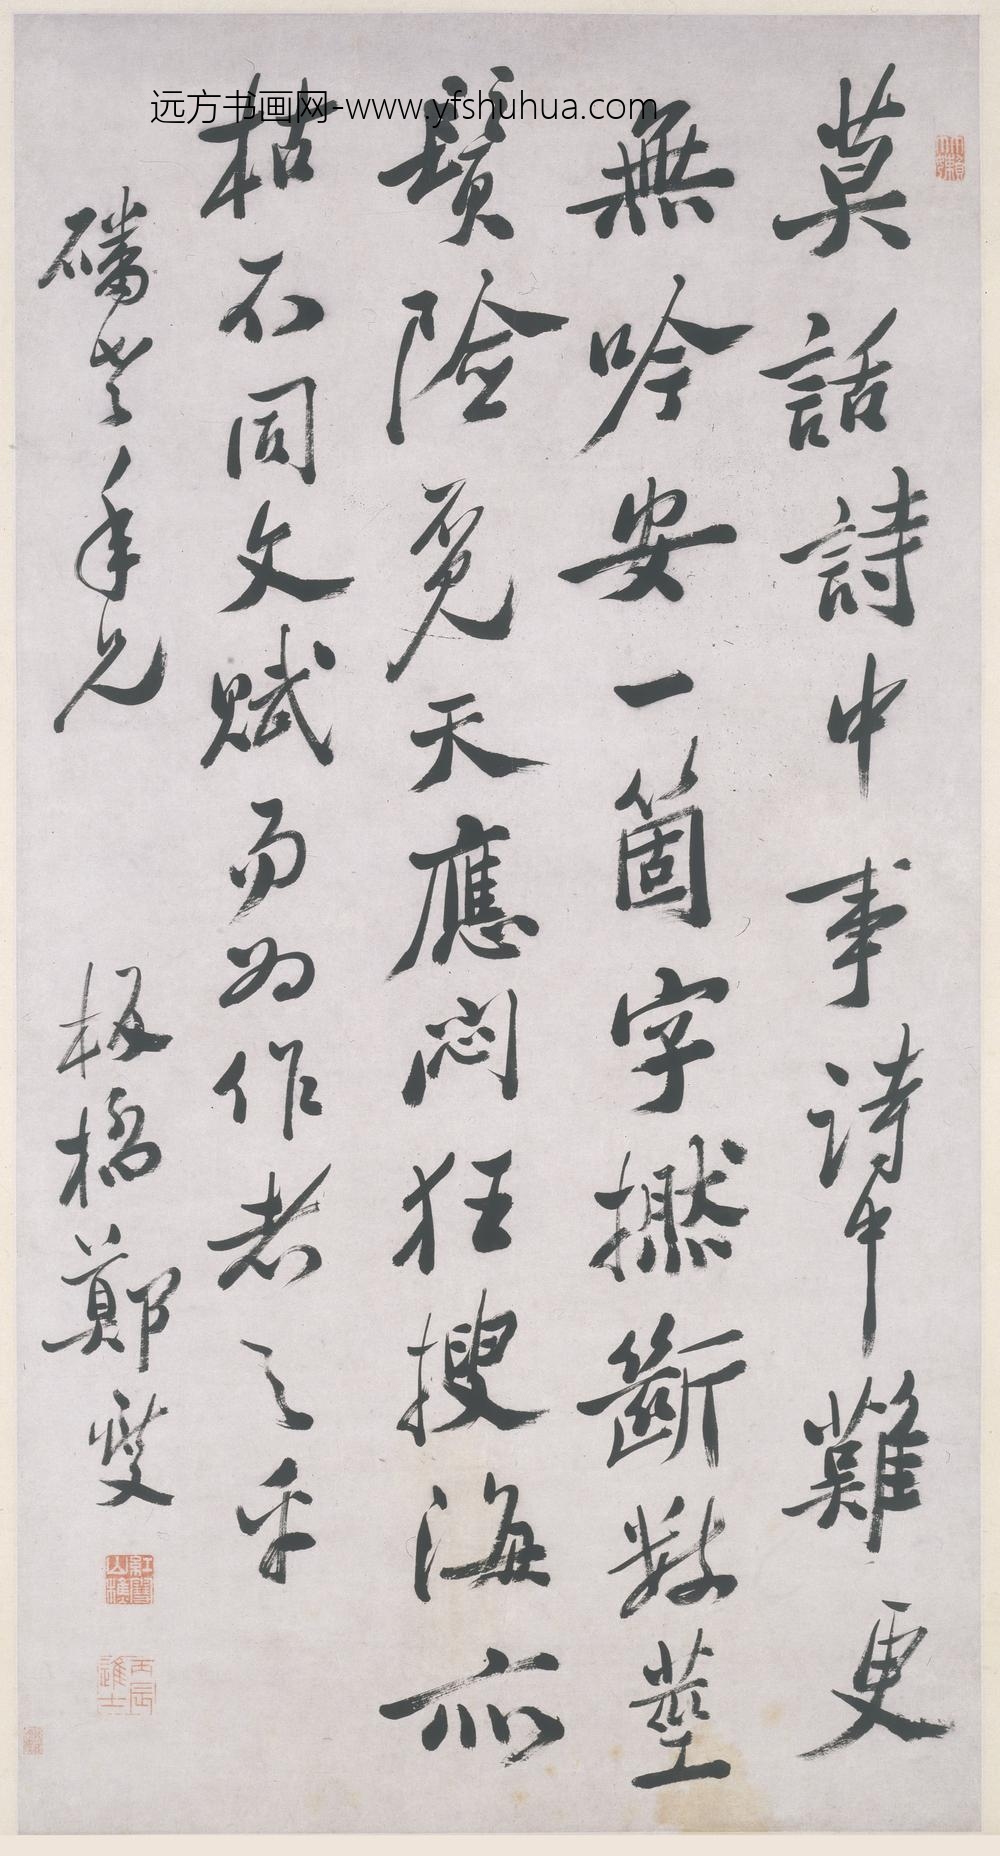 远方书画网-www.yfshuhua.com
莫話詩中事詩中難更
無吟安一箇字撚斷數莖
鬚險覓天應悶狂搜海亦
枯不同文賦易為作者之乎
磻老年兄
板橋鄭燮
紅雪山樵
丙辰進士